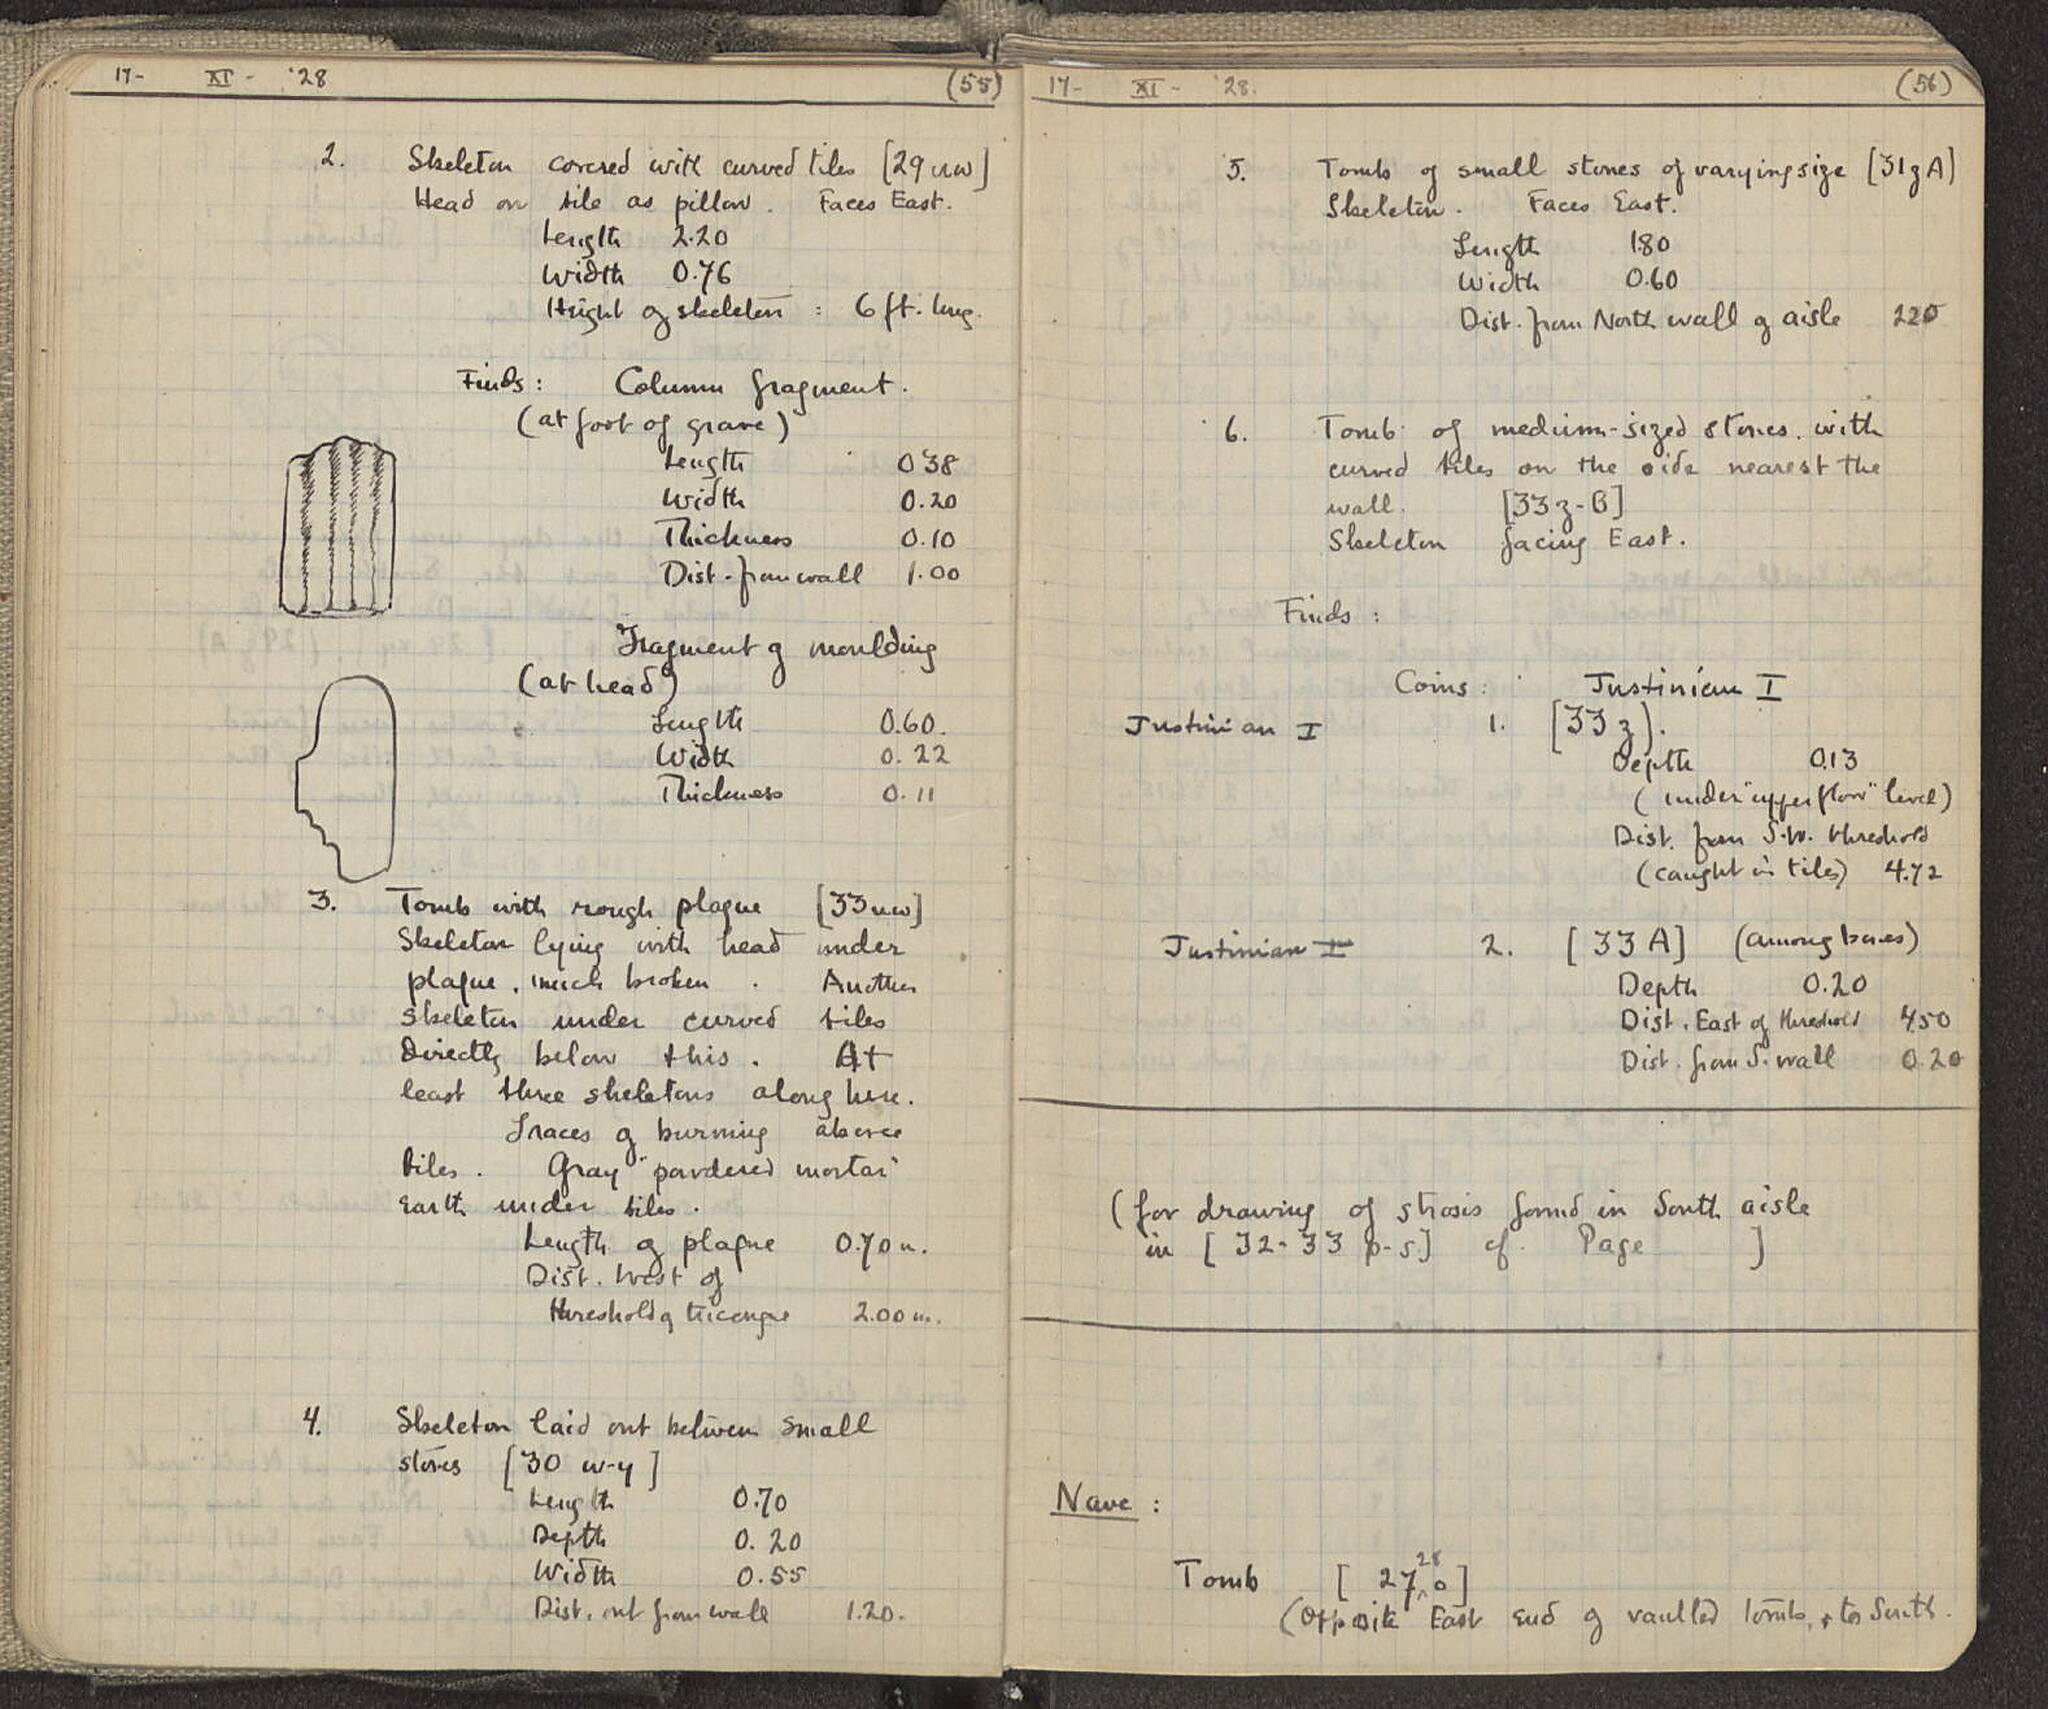 17- XI - '28 (55)
2. Skeleton covered with curved tiles [29 uw]
Head on tile as pillow. Faces East.
Length 2.20
Width 0.76
Height of skeleton : 6 ft. long.
Finds: Column fragment.
(at foot of grave)
Length 0 38
Width 0.20
Thickness 0.10
Dist. from wall 1.00
Fragment of moulding
(at head)
Length 0.60.
Width 0.22
Thickness 0.11
3. Tomb with rough plaque [33 uw]
Skeleton lying with head under
plaque, much broken. Another
skeleton under curved tiles
directly below this. At
least three skeletons along here.
Traces of burning above
tiles. Gray "powdered mortar"
Earth under tiles.
Length of plaque 0.70 m.
Dist. West of
threshold of 2.00 m.
4. Skeleton laid out between small
stones [30 w-y]
Length 0.70
Depth 0.20
Width 0.55
Dist. out from wall 1.20.
17- XI - '28. (56)
5. Tomb of small stones of varying size [31 z A]
Skeleton. Faces East.
Length 1.80
Width 0.60
Dist. from North wall of aisle 2.20
6. Tomb of medium-sized stones with
curved tiles on the side nearest the
wall. [33 z-B]
Skeleton facing East.
Finds :
Coins : Justinian I
Justinian I 1. [33 z].
Depth 0.13
(under "upper floor" level)
Dist. from S.W. threshold
(caught in tiles) 4.72
Justinian I 2. [33 A] (among bones)
Depth 0.20
Dist. East of threshold 4.50
Dist. from S. wall 0.20
(for drawing of strosis found in South aisle
in [32-33 p-s] cf. Page ]
Nave :
Tomb [27 28 o]
(Opposite East end of vaulted tomb, to South.